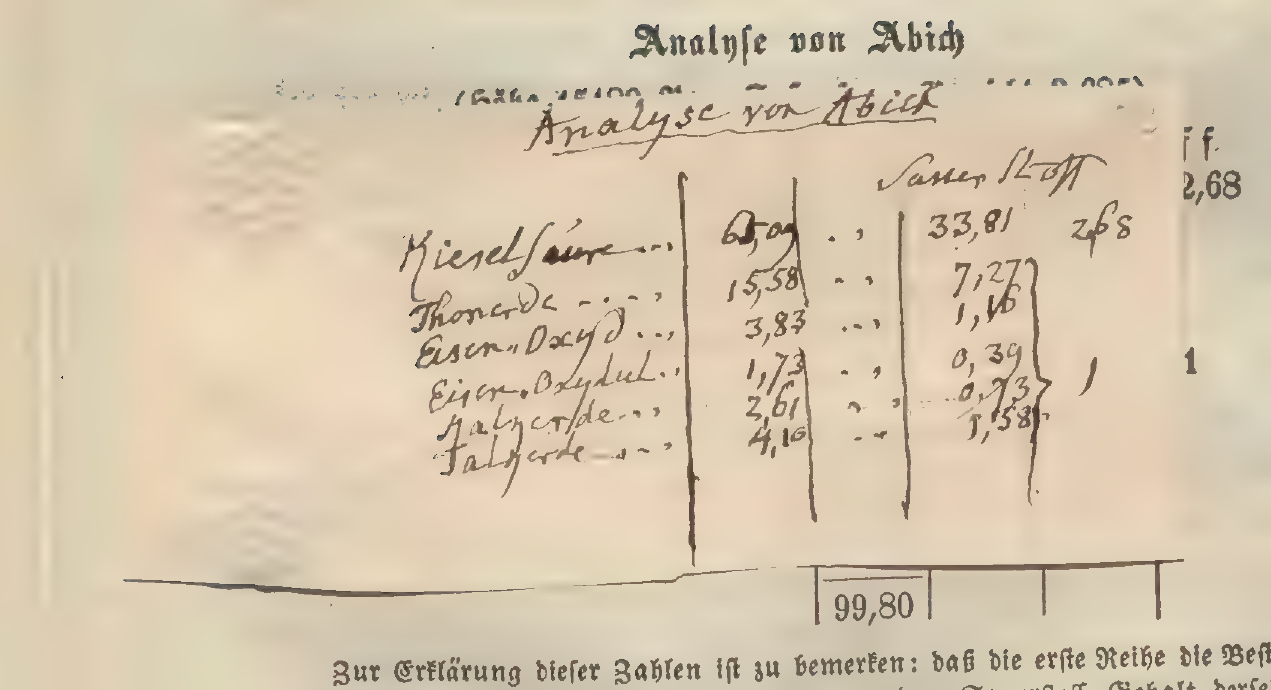 Analyse von Abich
Analyse von Abich
f f.
2,68
Sauer Stoff
Kiesel säure ... 65,09 .. 33,81 2,68
Thonerde ..... 15,58 .. 7,27
Eisen-Oxyd ... 3,83 ... 1,16
Eisen-Oxydul ... 1,73 .. 0,39 1 1
Kalkerde ... 2,61 .. 0,73
Talkerde ..... 4,10 .. 1,58
99,80
Zur Erklärung dieser Zahlen ist zu bemerken: daß die erste Reihe die